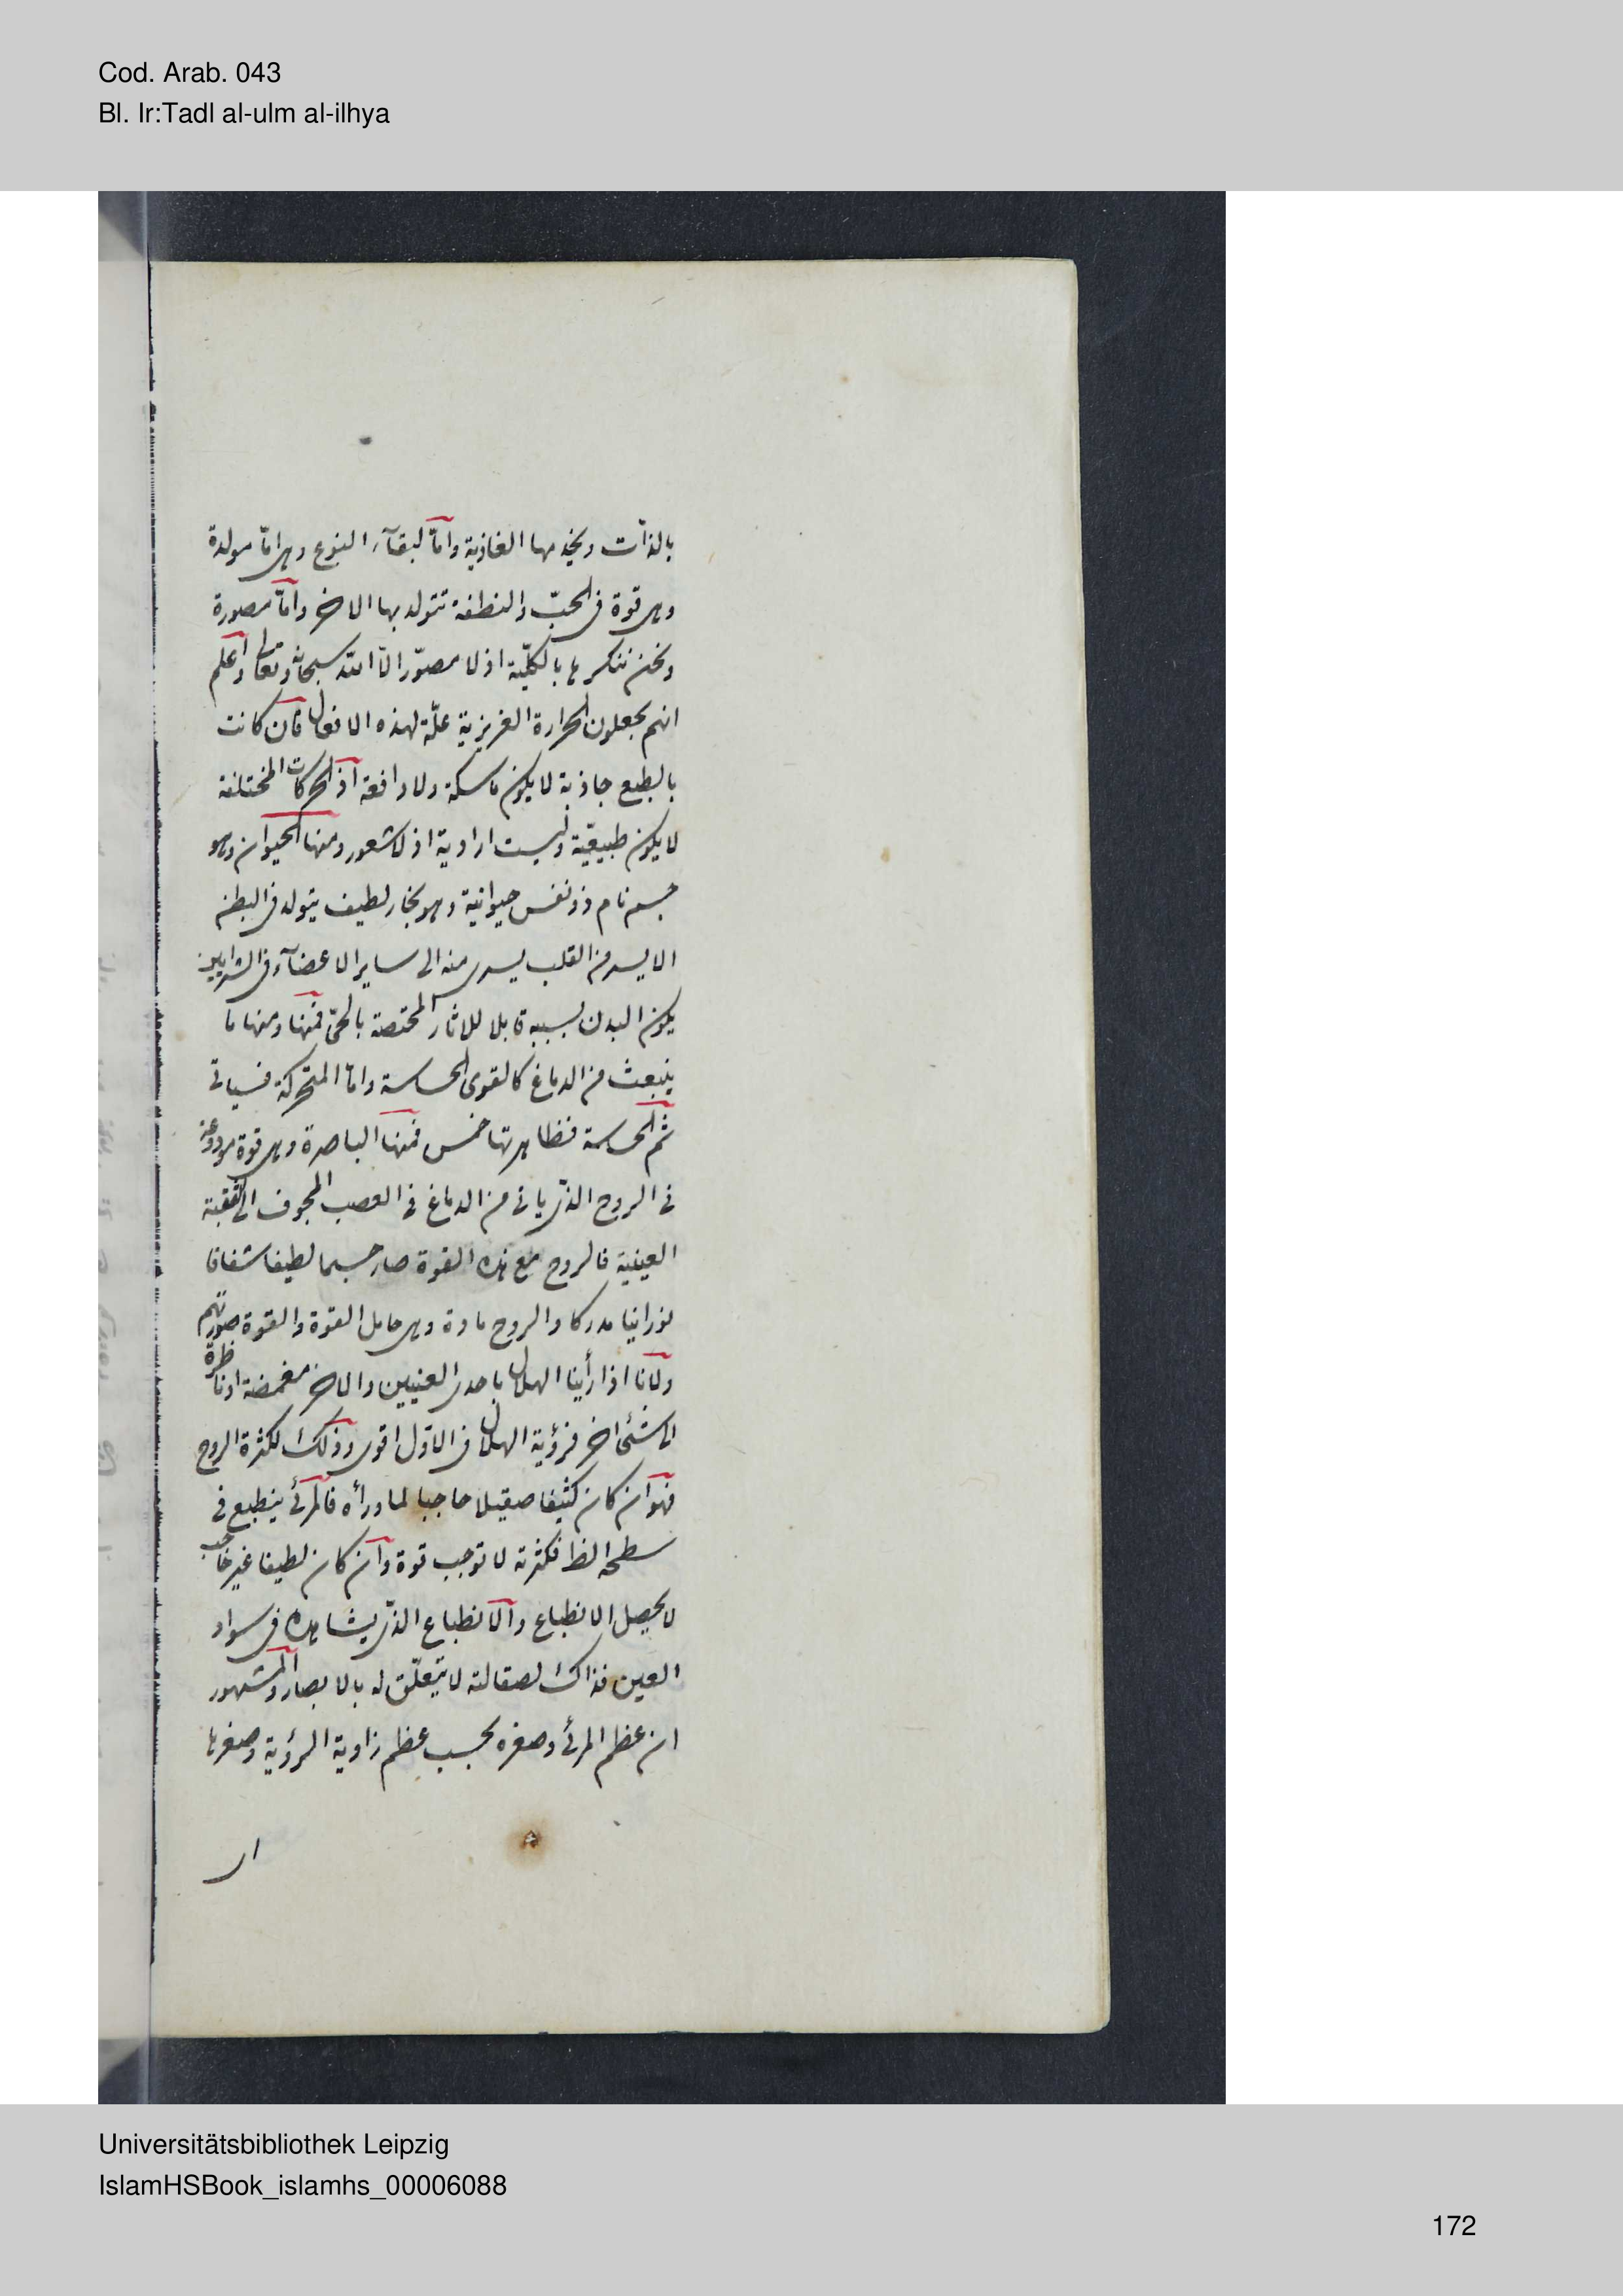 Cod. Arab. 043
Bl. Ir:Tadl al-ulm al-ilhya
بالذات ويخدمها الغاذية واما لبقآء النوع وهى امّا مولدة
وهى قوة فى الحبّ والنطفة تتولد بها الاخر وامّا مصورة
ونحن ننكرها بالكليّة اذ لا مصوّر الّا الله سبحانه وتعالى واعلم
انهم يجعلون الحرارة الغريزية علّة لهذه الافعال فان كانت
بالطبع جاذبة لا يكون ماسكة ولا دافعة اذ الحركات المختلفة
لا يكون طبيعيّة وليست ارادية اذ لا شعور ومنها الحيوان وهو
جسم نام ذو نفس حيوانية وهو بخار لطيف يتولد فى البطن
الايسر من القلب يسرى منه الى ساير الاعضآء فى الشرايين
يكون البدن بسببه قابلا للاثار المختصة بالحىّ فمنها ومنها ما
ينبعث من الدماغ كالقوى الحساسة وامّا المتحركة فسياتى
ثم الحساسة فظاهرتها خمس فمنها الباصرة وهى قوة مودوعة
فى الروح الذى ياتى من الدماغ فى العصب المجوف الى الثقبة
العينية فالروح مع هذه القوة صار جسما لطيفا شفافا
نورانيا مدركا والروح مادة وهى حامل القوة والقوة صورتهم
ولانا اذا رأينا الهلال باحدى العينين والاخر مغمضة او ناظرة
الى شئ اخر فرؤية الهلال فى الاول اقوى وذلك لكثرة الروح
فهو ان كان كثيفا صقيلا حاجبا لما ورأه فالمرئى ينطبع فى
سطحه الظ فكثرته لا توجب قوة وان كان لطيفا غير حاجب
لا يحصل الانطباع والانطباع الذى يشاهده فى سواد
العين فذاك لصقالته لا يتعلّق له بالابصار والمشهور
ان عظم المرئى وصغره بحسب عظم زاوية الرؤية وصغرها
Universitätsbibliothek Leipzig
IslamHSBook_islamhs_00006088
172